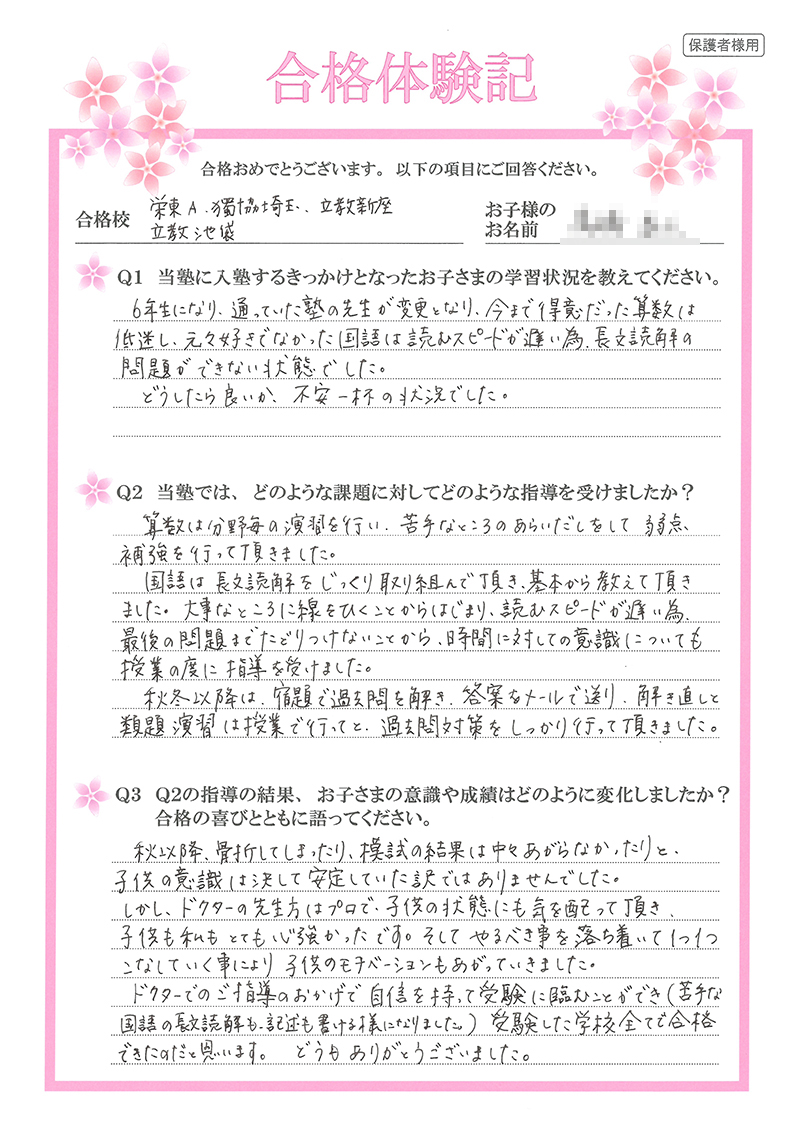 保護者様用
合格体験記
合格おめでとうございます。以下の項目にご回答ください。
合格校 栄東A、獨協埼玉、立教新座
立教池袋
お子様の
お名前
Q1 当塾に入塾するきっかけとなったお子さまの学習状況を教えてください。
6年生になり、通っていた塾の先生が変更となり、今まで得意だった算数は
低迷し、元々好きでなかった国語は読むスピードが遅い為、長文読解の
問題ができない状態でした。
どうしたら良いか、不安一杯の状況でした。
Q2 当塾では、どのような課題に対してどのような指導を受けましたか？
算数は分野毎の演習を行い、苦手なところのあらいだしをして弱点、
補強を行って頂きました。
国語は長文読解をじっくり取り組んで頂き、基本から教えて頂き
ました。大事なところに線をひくことからはじまり、読むスピードが遅い為、
最後の問題までたどりつけないことから、時間に対しての意識についても
授業の度に指導を受けました。
秋冬以降は、宿題で過去問を解き、答案をメールで送り、解き直しと
類題演習は授業で行ってと、過去問対策をしっかり行って頂きました。
Q3 Q2の指導の結果、お子さまの意識や成績はどのように変化しましたか？
合格の喜びとともに語ってください。
秋以降、骨折してしまったり、模試の結果は中々あがらなかったりと、
子供の意識は決して安定していた訳ではありませんでした。
しかし、ドクターの先生方はプロで、子供の状態にも気を配って頂き、
子供も私もとても心強かったです。そしてやるべき事を落ち着いて1つ1つ
こなしていく事により子供のモチベーションもあがっていきました。
ドクターでのご指導のおかげで自信を持って受験に臨むことができ（苦手な
国語の長文読解も、記述も書ける様になりました。）受験した学校全てで合格
できたのだと思います。どうもありがとうございました。